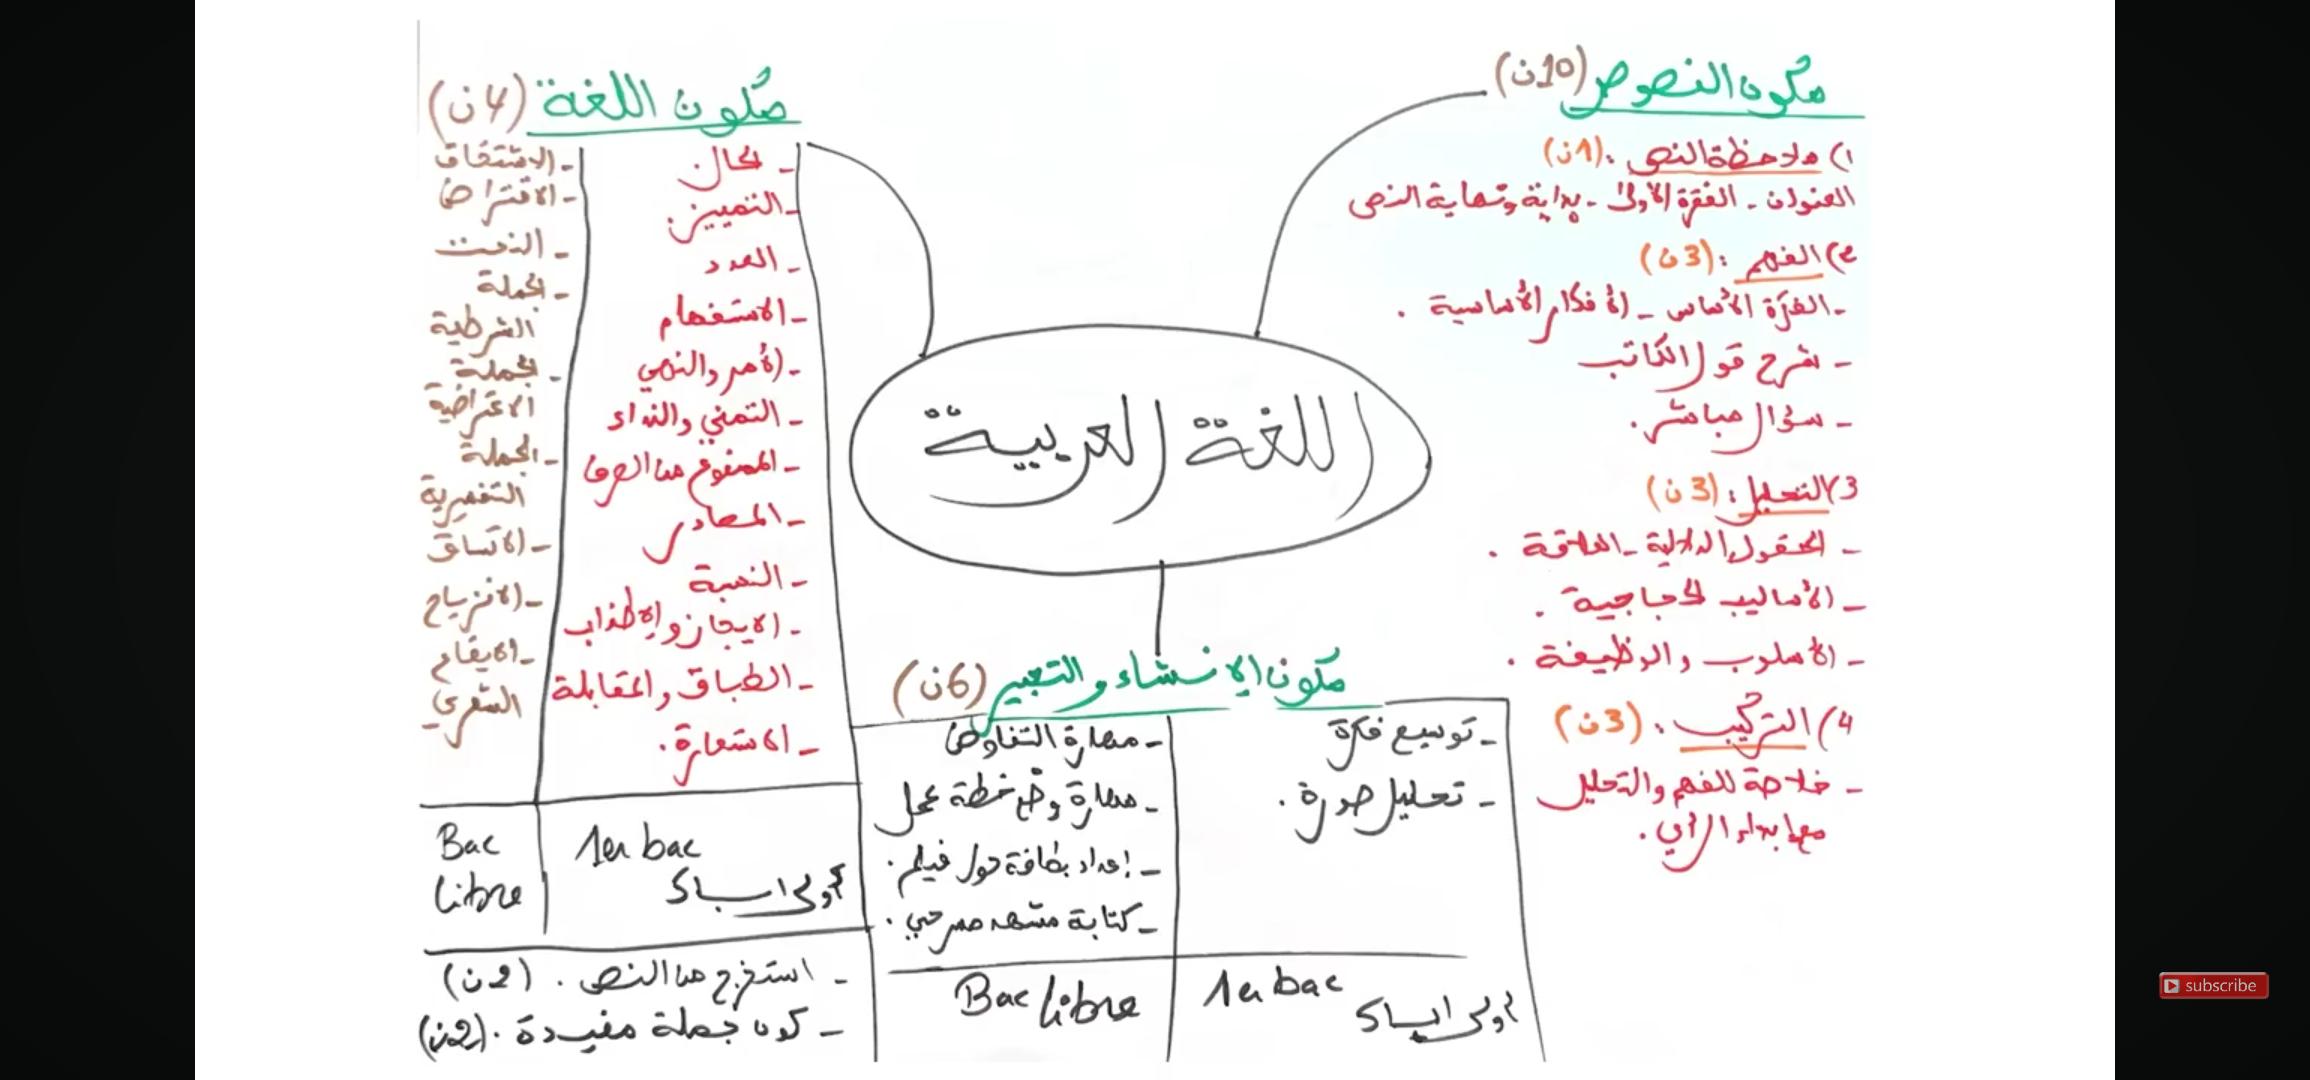 مكون النصوص (10ن)
1) ملاحظة النص: (1ن)
العنوان - الفقرة الأولى - بداية ونهاية النص
2) الفهم: (3ن)
- الفكرة الأساس - الأفكار الأساسية.
- شرح قول الكاتب
- سؤال مباشر.
3) التحليل: (3ن)
- الحقول الدلالية - العلاقة.
- الأساليب الحجاجية.
- الأسلوب والوظيفة.
4) التركيب: (3ن)
- خلاصة للفهم والتحليل
مع إبداء الرأي.
اللغة العربية
مكون اللغة (4ن)
- الحال.
- التمييز.
- العدد
- الاستفهام
- الأمر والنهي
- التمني والنداء
- الممنوع من الصرف
- المصادر
- النسبة
- الايجاز والإطناب
- الطباق والمقابلة
- الاستعارة.
1er bac
أولى باك
- الاشتقاق
- الاقتراض
- النحت
- الجملة
الشرطية
- الجملة
الاعتراضية
- الجملة
التفسيرية
- الاتساق
- الانزياح
- الايقاع
الشعري
Bac
libre
- استخرج من النص. (2ن)
- كون جملة مفيدة. (2ن)
مكون الإنشاء والتعبير (6ن)
- توسيع فكرة
- تحليل صورة.
1er bac
أولى باك
- مهارة التفاوض
- مهارة وضع خطة عمل
- إعداد بطاقة حول فيلم.
- كتابة مشهد مسرحي.
Bac libre
subscribe